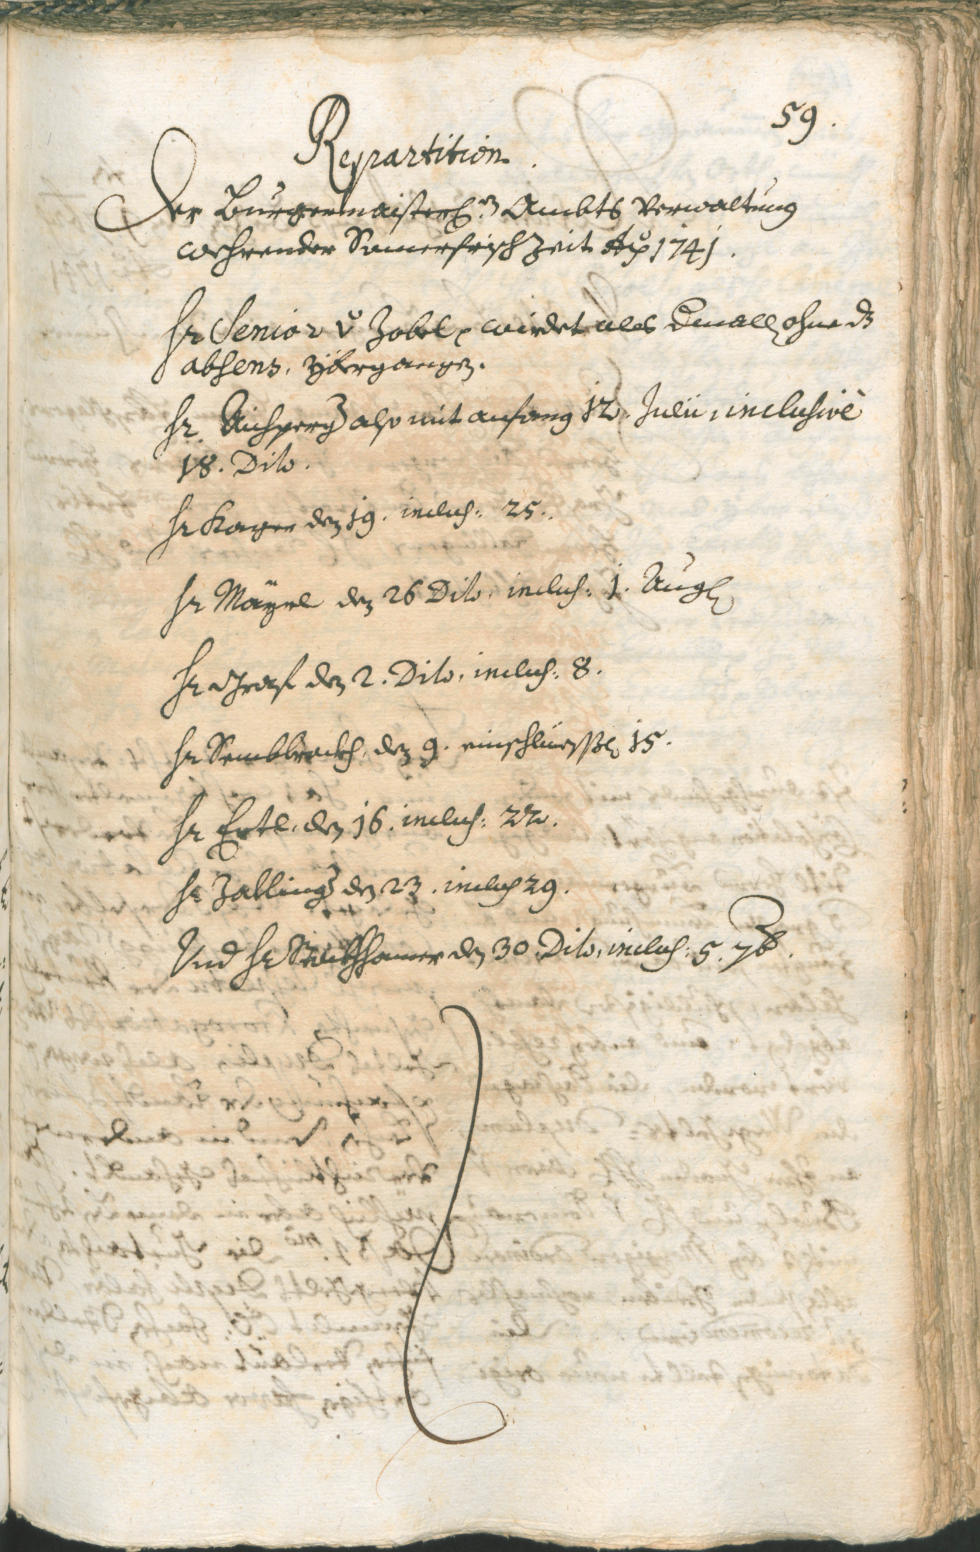 59.
Repartition.
Der Burgermaisterl: Ambts Verwaltung
wehrender Sumerfrisch Zeit Aõ 1741.
Hr Senior v Zobel, wirdet als Emall ohne d
absens. ybergangen.
Hr Aichperg also mit anfang 12. Julii, inclusivè
18. Dito.
Hr Kager den 19. inclus: 25.
Hr Mayrl den 26 Dito. inclus: 1. Aug
Hr Graf den 2. Dito. inclus: 8.
Hr den 9. einschliessl 15.
Hr Ertl. den 16. inclus: 22.
Hr Zallinger den 23. inclus 29.
Und Hr den 30. Dito, inclus: 5. 7b.